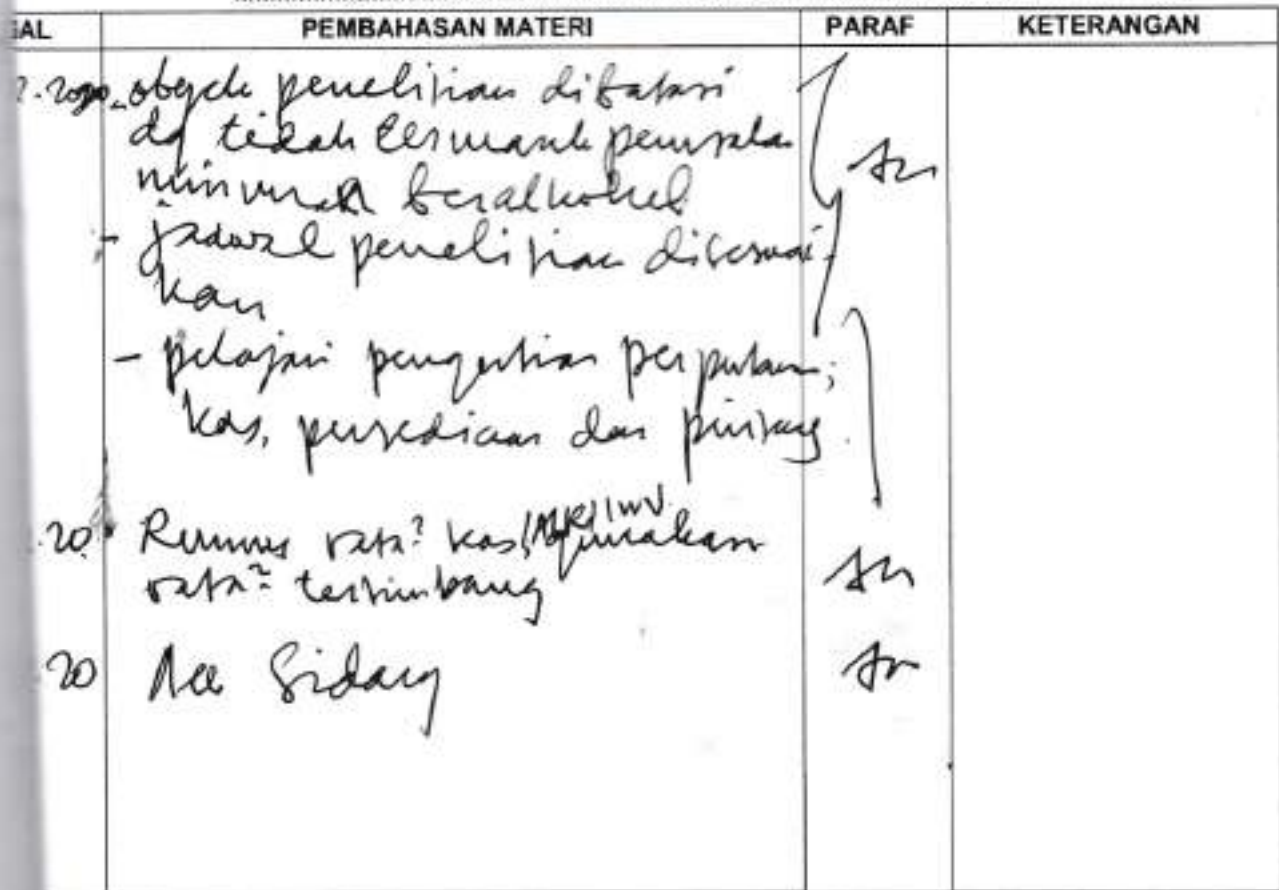 GAL PEMBAHASAN MATERI PARAF KETERANGAN
2.2020 - obyek penelitian dibatasi
dg tidak termasuk perusaha
minuman beralkohol
- jadwal penelitian disesuai-
kan
- pelajari pengertian perputaran;
kas, persediaan dan piutang.
20 Rumus rata² kas gunakan
rata² tertimbang
20 Acc Sidang